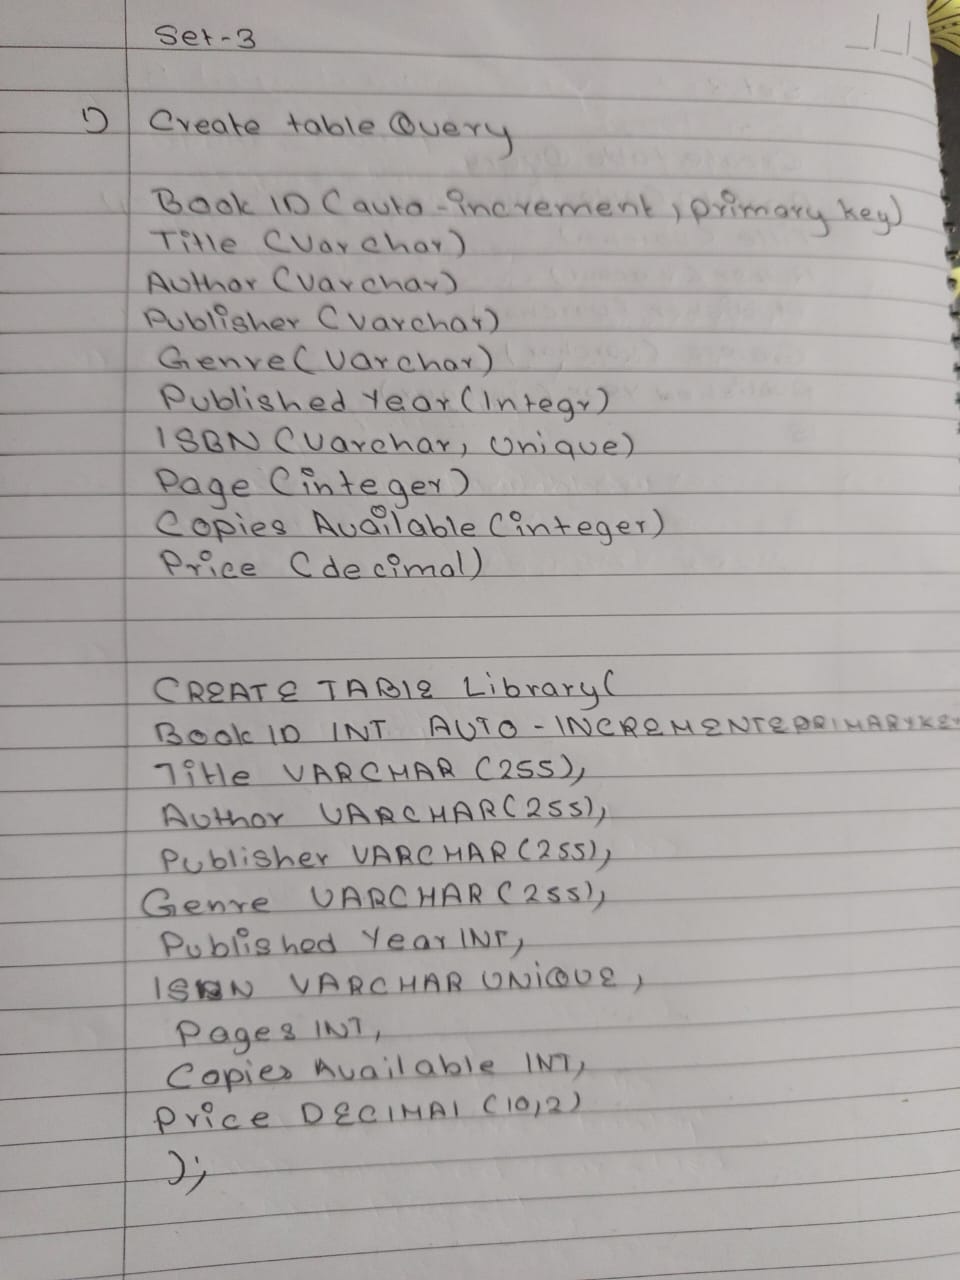 Set-3
1) Create table Query
Book ID (auto-increment, primary key)
Title (Varchar)
Author (Varchar)
Publisher (Varchar)
Genre (Varchar)
Published Year (Integr)
ISBN (Varchar, Unique)
Page (integer)
Copies Available (integer)
Price (decimal)
CREATE TABLE Library(
Book ID INT AUTO-INCREMENTE PRIMARY KEY
Title VARCHAR (255),
Author VARCHAR (255),
Publisher VARCHAR (255),
Genre VARCHAR (255),
Published Year INT,
ISBN VARCHAR UNIQUE,
Pages INT,
Copies Available INT,
Price DECIMAL (10,2)
);